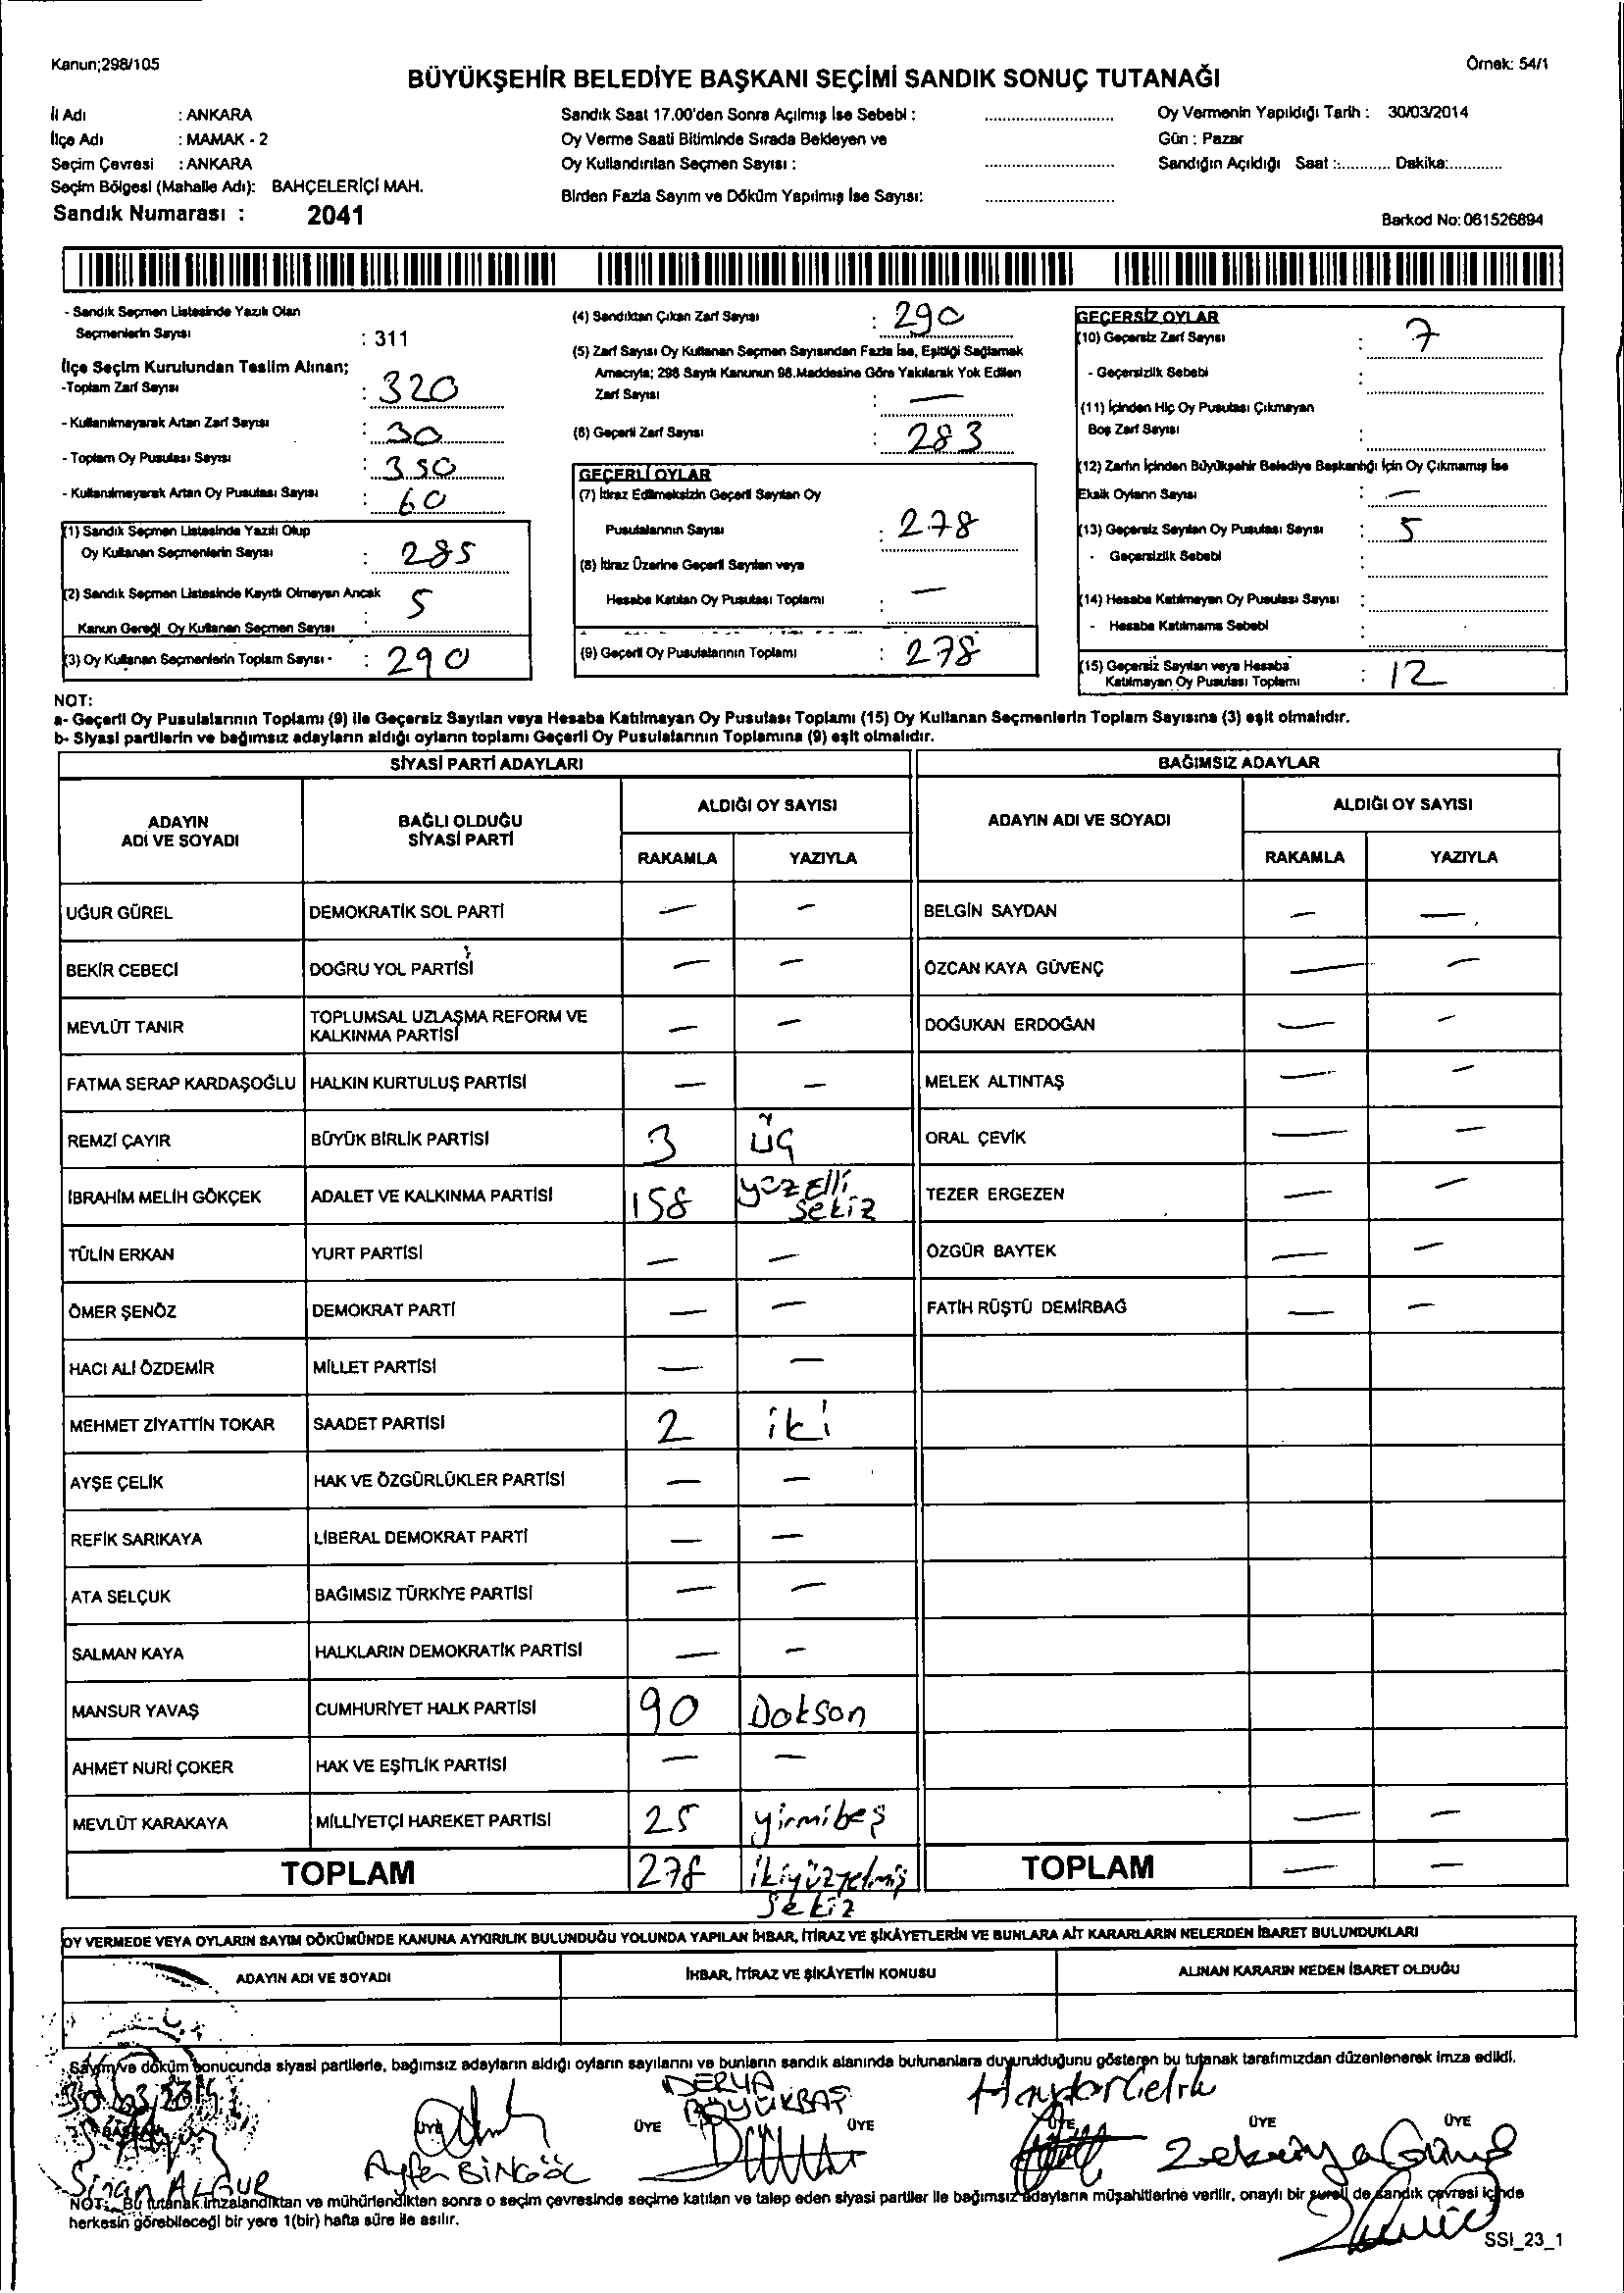 Kanun;298/105
Örnek: 54/1
BÜYÜKŞEHİR BELEDİYE BAŞKANI SEÇİMİ SANDIK SONUÇ TUTANAĞI
İl Adı : ANKARA
İlçe Adı : MAMAK - 2
Seçim Çevresi : ANKARA
Seçim Bölgesi (Mahalle Adı): BAHÇELERİÇİ MAH.
Sandık Numarası : 2041
Sandık Saat 17.00'den Sonra Açılmış İse Sebebi :
Oy Verme Saati Bitiminde Sırada Bekleyen ve
Oy Kullandırılan Seçmen Sayısı :
Birden Fazla Sayım ve Döküm Yapılmış İse Sayısı:
Oy Vermenin Yapıldığı Tarih : 30/03/2014
Gün : Pazar
Sandığın Açıldığı Saat :............ Dakika:............
Barkod No: 061526894
- Sandık Seçmen Listesinde Yazılı Olan
Seçmenlerin Sayısı : 311
İlçe Seçim Kurulundan Teslim Alınan;
-Toplam Zarf Sayısı : 320
- Kullanılmayarak Artan Zarf Sayısı : 30
- Toplam Oy Pusulası Sayısı : 350
- Kullanılmayarak Artan Oy Pusulası Sayısı : 60
(1) Sandık Seçmen Listesinde Yazılı Olup
Oy Kullanan Seçmenlerin Sayısı : 285
(2) Sandık Seçmen Listesinde Kayıtlı Olmayan Ancak
Kanun Gereği Oy Kullanan Seçmen Sayısı : 5
(3) Oy Kullanan Seçmenlerin Toplam Sayısı - : 290
(4) Sandıktan Çıkan Zarf Sayısı : 290
(5) Zarf Sayısı Oy Kullanan Seçmen Sayısından Fazla İse, Eşitliği Sağlamak
Amacıyla; 298 Sayılı Kanunun 98.Maddesine Göre Yakılarak Yok Edilen
Zarf Sayısı : —
(6) Geçerli Zarf Sayısı : 283
GEÇERLİ OYLAR
(7) İtiraz Edilmeksizin Geçerli Sayılan Oy
Pusulalarının Sayısı : 278
(8) İtiraz Üzerine Geçerli Sayılan veya
Hesaba Katılan Oy Pusulası Toplamı : —
(9) Geçerli Oy Pusulalarının Toplamı : 278
GEÇERSİZ OYLAR
(10) Geçersiz Zarf Sayısı : 7
- Geçersizlik Sebebi :
(11) İçinden Hiç Oy Pusulası Çıkmayan
Boş Zarf Sayısı :
(12) Zarfın İçinden Büyükşehir Belediye Başkanlığı İçin Oy Çıkmamış İse
Eksik Oyların Sayısı : —
(13) Geçersiz Sayılan Oy Pusulası Sayısı : 5
- Geçersizlik Sebebi :
(14) Hesaba Katılmayan Oy Pusulası Sayısı :
- Hesaba Katılmama Sebebi :
(15) Geçersiz Sayılan veya Hesaba
Katılmayan Oy Pusulası Toplamı : 12
NOT:
a- Geçerli Oy Pusulalarının Toplamı (9) ile Geçersiz Sayılan veya Hesaba Katılmayan Oy Pusulası Toplamı (15) Oy Kullanan Seçmenlerin Toplam Sayısına (3) eşit olmalıdır.
b- Siyasi partilerin ve bağımsız adayların aldığı oyların toplamı Geçerli Oy Pusulalarının Toplamına (9) eşit olmalıdır.
SİYASİ PARTİ ADAYLARI
BAĞIMSIZ ADAYLAR
ADAYIN ADI VE SOYADI
BAĞLI OLDUĞU SİYASİ PARTİ
ALDIĞI OY SAYISI
RAKAMLA YAZIYLA
ADAYIN ADI VE SOYADI
ALDIĞI OY SAYISI
RAKAMLA YAZIYLA
UĞUR GÜREL DEMOKRATİK SOL PARTİ — — BELGİN SAYDAN — —
BEKİR CEBECİ DOĞRU YOL PARTİSİ — — ÖZCAN KAYA GÜVENÇ — —
MEVLÜT TANIR TOPLUMSAL UZLAŞMA REFORM VE KALKINMA PARTİSİ — — DOĞUKAN ERDOĞAN — —
FATMA SERAP KARDAŞOĞLU HALKIN KURTULUŞ PARTİSİ — — MELEK ALTINTAŞ — —
REMZİ ÇAYIR BÜYÜK BİRLİK PARTİSİ 3 üç ORAL ÇEVİK — —
İBRAHİM MELİH GÖKÇEK ADALET VE KALKINMA PARTİSİ 158 yüzelli sekiz TEZER ERGEZEN — —
TÜLİN ERKAN YURT PARTİSİ — — ÖZGÜR BAYTEK — —
ÖMER ŞENÖZ DEMOKRAT PARTİ — — FATİH RÜŞTÜ DEMİRBAĞ — —
HACI ALİ ÖZDEMİR MİLLET PARTİSİ — —
MEHMET ZİYATTİN TOKAR SAADET PARTİSİ 2 iki
AYŞE ÇELİK HAK VE ÖZGÜRLÜKLER PARTİSİ — —
REFİK SARIKAYA LİBERAL DEMOKRAT PARTİ — —
ATA SELÇUK BAĞIMSIZ TÜRKİYE PARTİSİ — —
SALMAN KAYA HALKLARIN DEMOKRATİK PARTİSİ — —
MANSUR YAVAŞ CUMHURİYET HALK PARTİSİ 90 Dokson
AHMET NURİ ÇOKER HAK VE EŞİTLİK PARTİSİ — —
MEVLÜT KARAKAYA MİLLİYETÇİ HAREKET PARTİSİ 25 yirmibeş — —
TOPLAM 278 ikiyüzyetmiş sekiz TOPLAM — —
OY VERMEDE VEYA OYLARIN SAYIM DÖKÜMÜNDE KANUNA AYKIRILIK BULUNDUĞU YOLUNDA YAPILAN İHBAR, İTİRAZ VE ŞİKÂYETLERİN VE BUNLARA AİT KARARLARIN NELERDEN İBARET BULUNDUKLARI
ADAYIN ADI VE SOYADI İHBAR, İTİRAZ VE ŞİKÂYETİN KONUSU ALINAN KARARIN NEDEN İBARET OLDUĞU
Sayım ve döküm sonucunda siyasi partilerle, bağımsız adayların aldığı oyların sayılarını ve bunların sandık alanında bulunanlara duyurulduğunu gösteren bu tutanak tarafımızdan düzenlenerek imza edildi.
30.03.2014
DERYA BÜYÜKBAŞ
Haydar Çelik
BAŞKAN ÜYE ÜYE ÜYE ÜYE ÜYE ÜYE
Ayfer BİNGÖL
Sinan ALGUR
NOT: Bu tutanak imzalandıktan ve mühürlendikten sonra o seçim çevresinde seçime katılan ve talep eden siyasi partiler ile bağımsız adayların müşahitlerine verilir, onaylı bir sureti de sandık çevresi içinde
herkesin görebileceği bir yere 1(bir) hafta süre ile asılır.
SSI_23_1